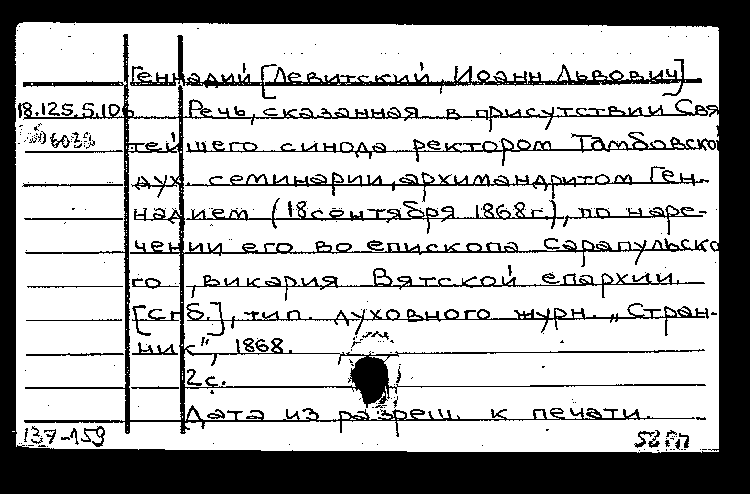 Геннадий [Левитский, Иоанн Львович]
18.125.5.106 Речь, сказанная в присутствии Свя
тейшего синода ректором Тамбовской
дух. семинарии, архимандритом Ген-
надием (18 сентября 1868 г.), по наре-
чении его во епископа Сарапульско
го, викария Вятской епархии.
[Спб.], тип. духовного журн. „Стран-
ник", 1868.
2 с.
Дата из разреш. к печати.
137-159